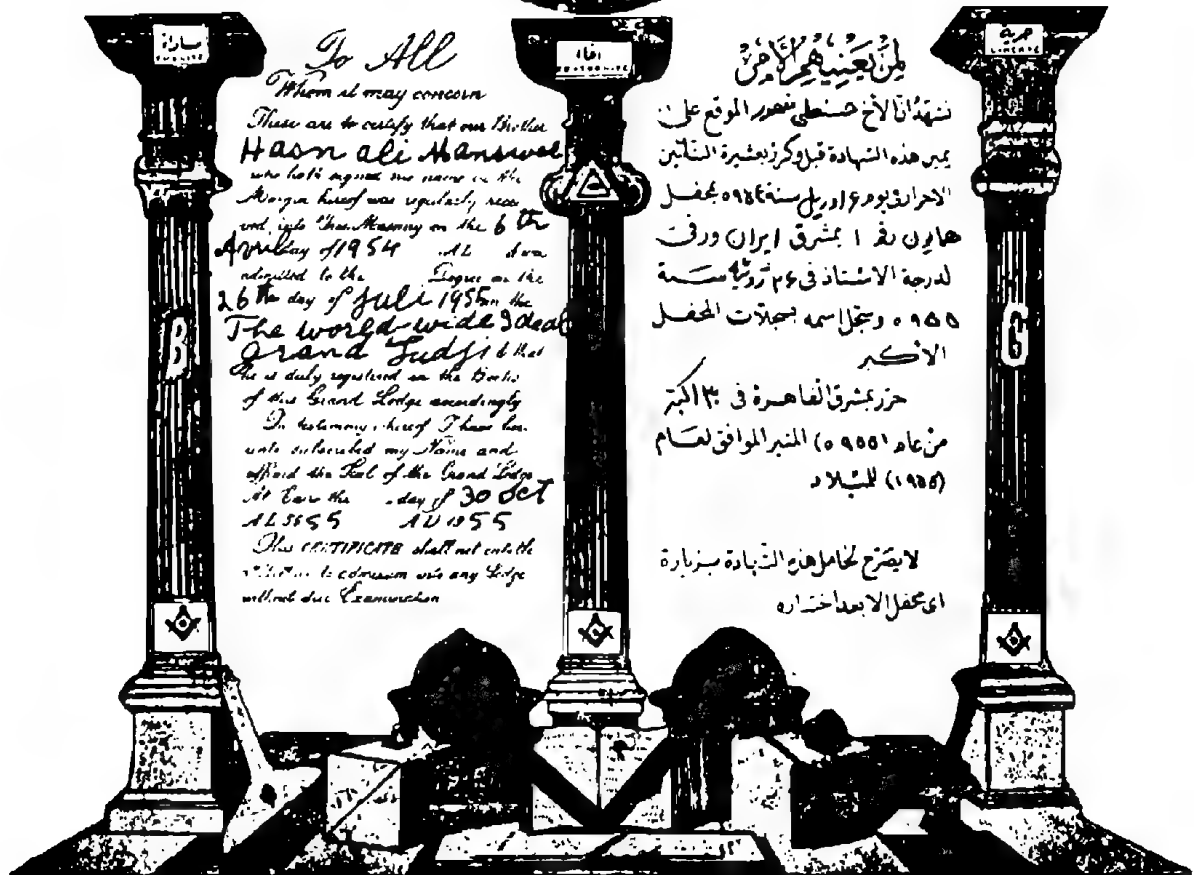 مساواة
اخاء
FRATERNITE
حرية
LIBERTE
To All
Whom it may concern
These are to certify that our Brother
Hasn ali Manswol
who hath signed his name in the
Margin hereof was regularly recei
ved into Free Masonry on the 6 th
April day of 1954 AL &was
admitted to the Degree on the
26 th day of Juli 1955 in the
The world-wide Ideal
Grand Ludji & that
he is duly registered in the Books
of this Grand Lodge accordingly
In testimony whereof I have here
unto subscribed my Name and
affixed the Seal of the Grand Lodge
At Cairo the day of 30 Oct
AL 5955 AD 1955
This CERTIFICATE shall not entitle
to admission into any Lodge
without due Examination
B
G
لمن يعنيهم الأمر
نشهد ان الأخ حسنعلى منصور الموقع على
يمين هذه الشهادة قبل وكرز بعشيرة البنائين
الاحرار فى يوم ٦ اوريل سنة ٥٩٥٤ بمحفل
همايون رقم ١ بمشرق ايران ورقى
لدرجة الاستاذ فى ٢٦ ژوئيه سنة
٥٩٥٥ وسجل اسمه بسجلات المحفل
الأكبر
حرر بمشرق القاهرة فى ٣٠ اكتبر
من عام (٥٩٥٥) المنير الموافق لعام
(١٩٥٥) للميلاد
لا يصرح لحامل هذه الشهادة بزيارة
اى محفل الا بعد اختباره